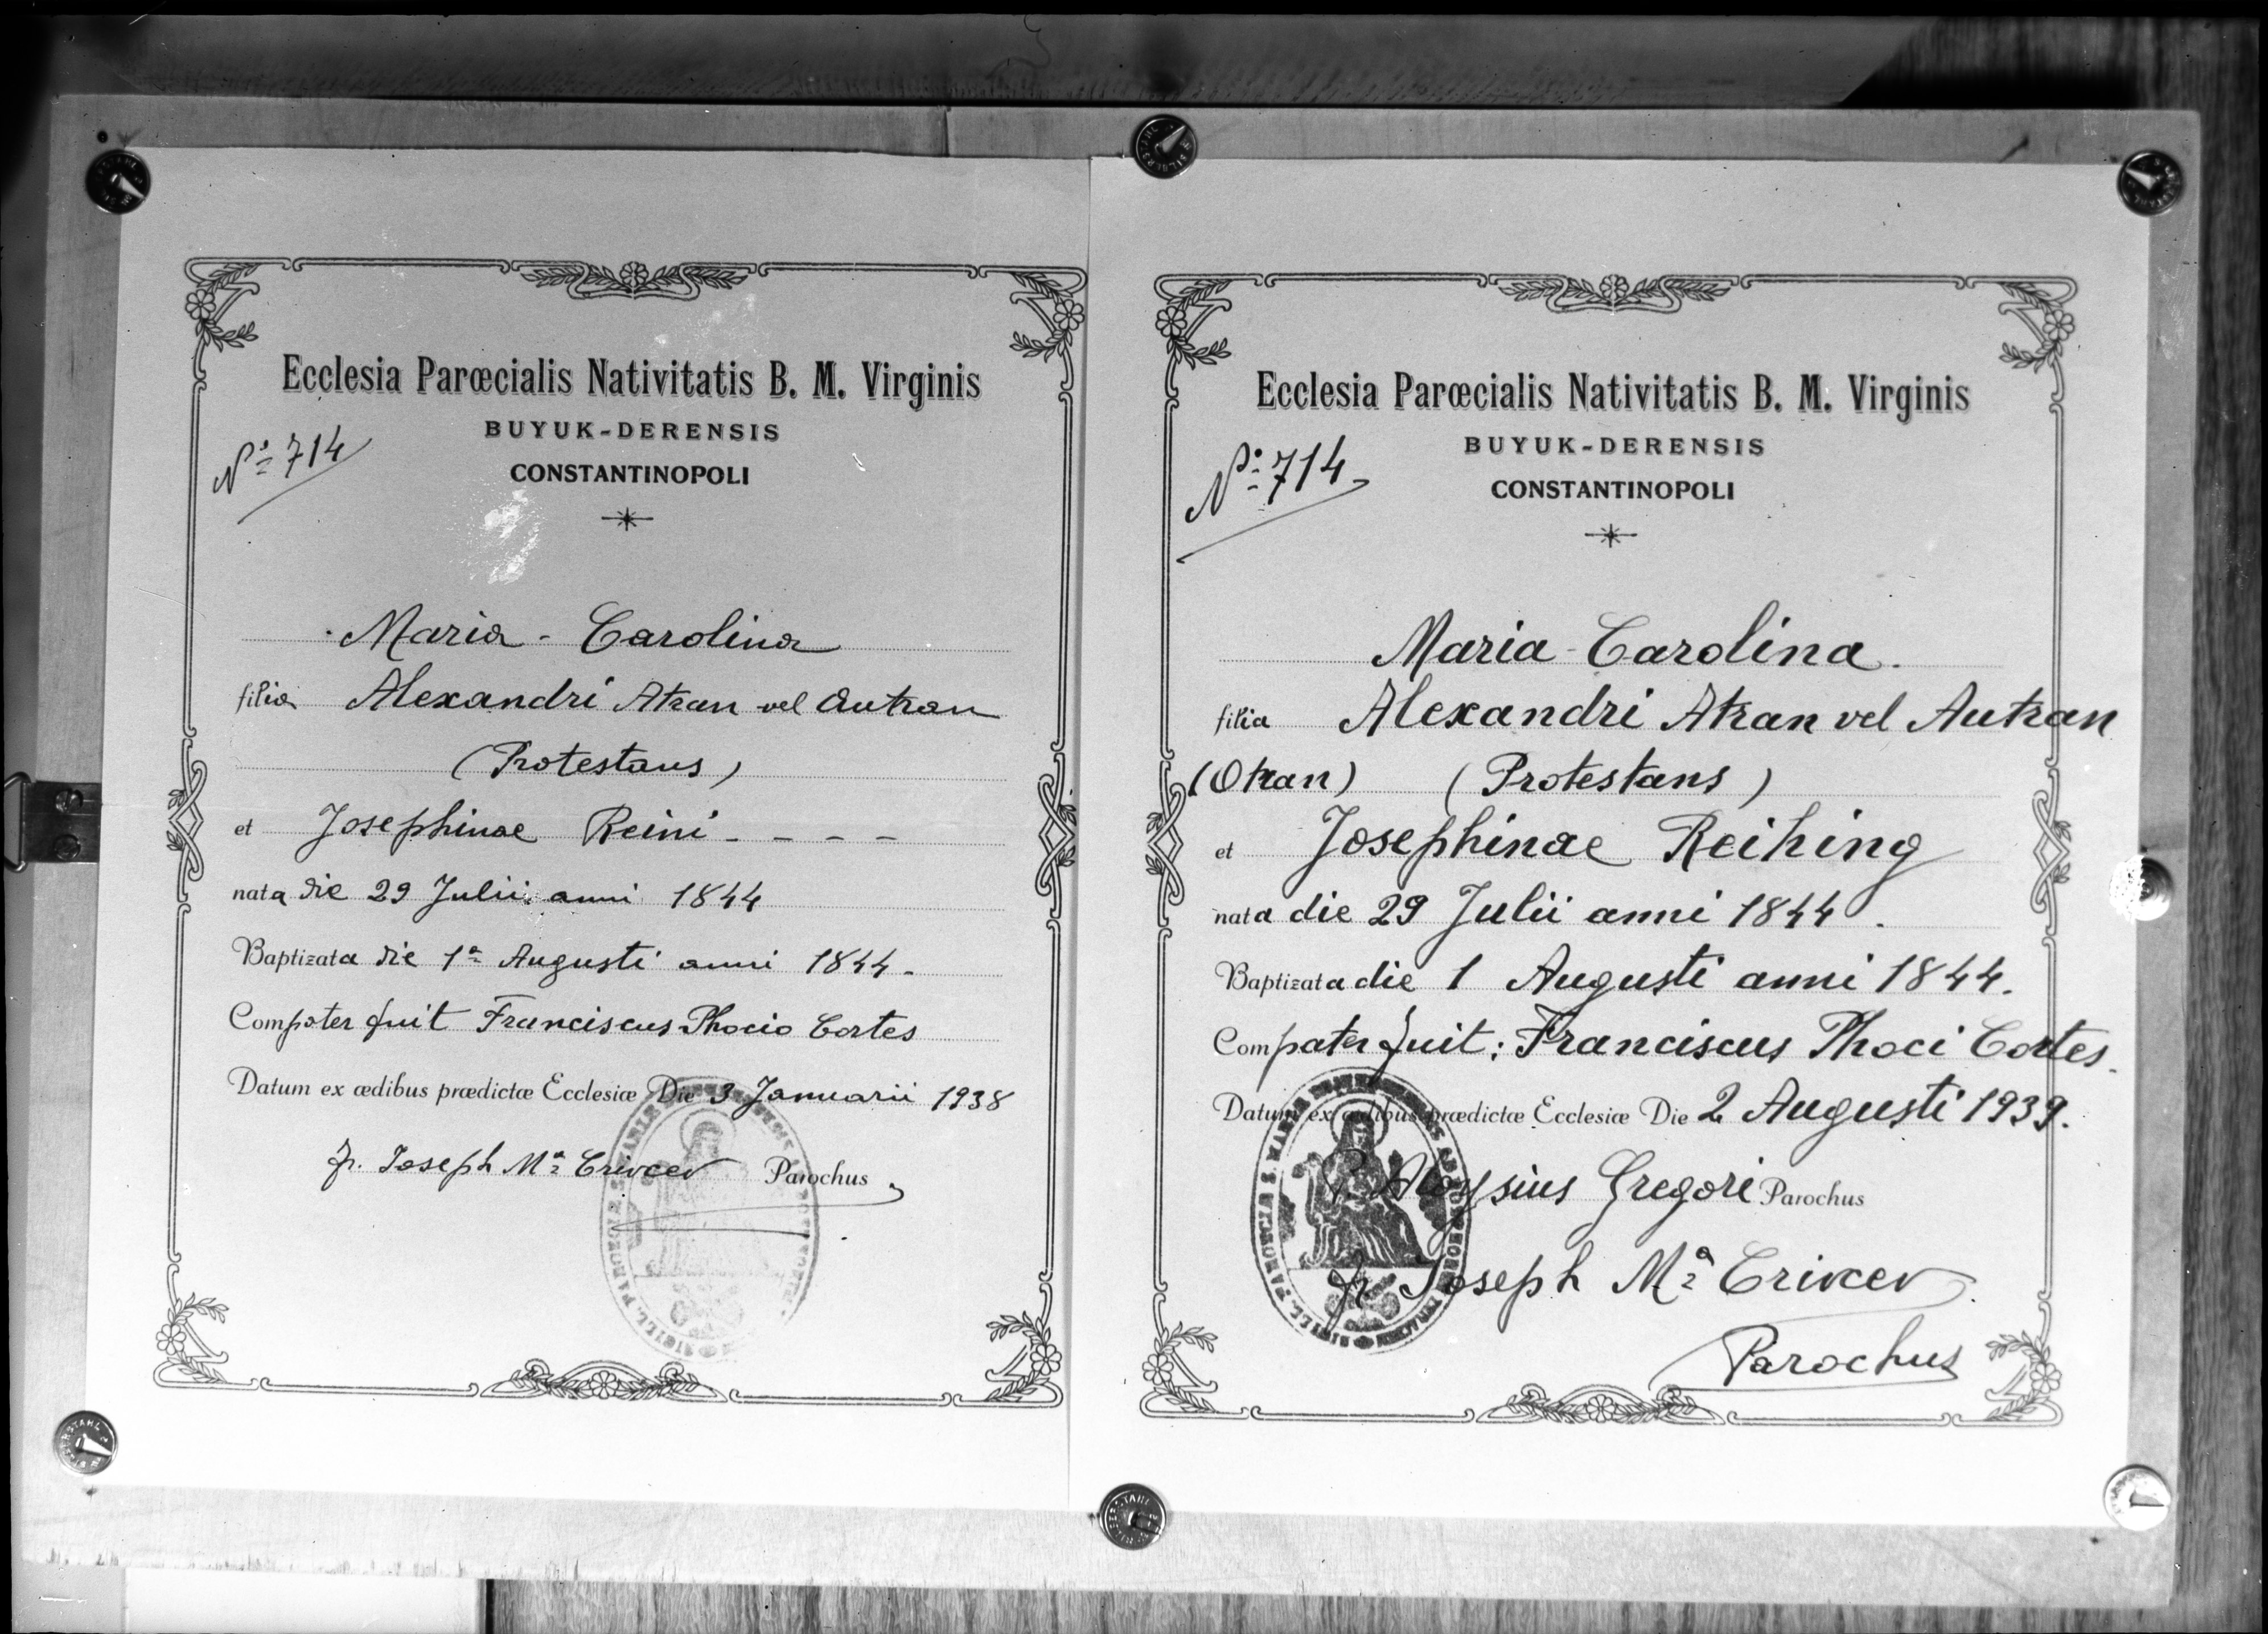 Ecclesia Parœcialis Nativitatis B. M. Virginis
BUYUK-DERENSIS
CONSTANTINOPOLI
Nº 714
Maria - Carolina
filia Alexandri Atran vel Autran
(Protestans)
et Josephinae Reini - - - -
nata die 29 Julii anni 1844
Baptizata die 1ª Augusti anni 1844.
Compater fuit Franciscus Phocio Cortes
Datum ex ædibus prædictæ Ecclesiæ Die 3 Januarii 1938
fr. Joseph Mª Crivcev Parochus
Ecclesia Parœcialis Nativitatis B. M. Virginis
BUYUK-DERENSIS
CONSTANTINOPOLI
Nº 714
Maria - Carolina.
filia Alexandri Atran vel Autran
(Otran) (Protestans)
et Josephinae Reihing
nata die 29 Julii anni 1844.
Baptizata die 1 Augusti anni 1844.
Compater fuit: Franciscus Phoci Cortes.
Datum ex ædibus prædictæ Ecclesiæ Die 2 Augusti 1939.
P. Aloysius Gregori Parochus
fr Joseph Mª Crivcev
Parochus